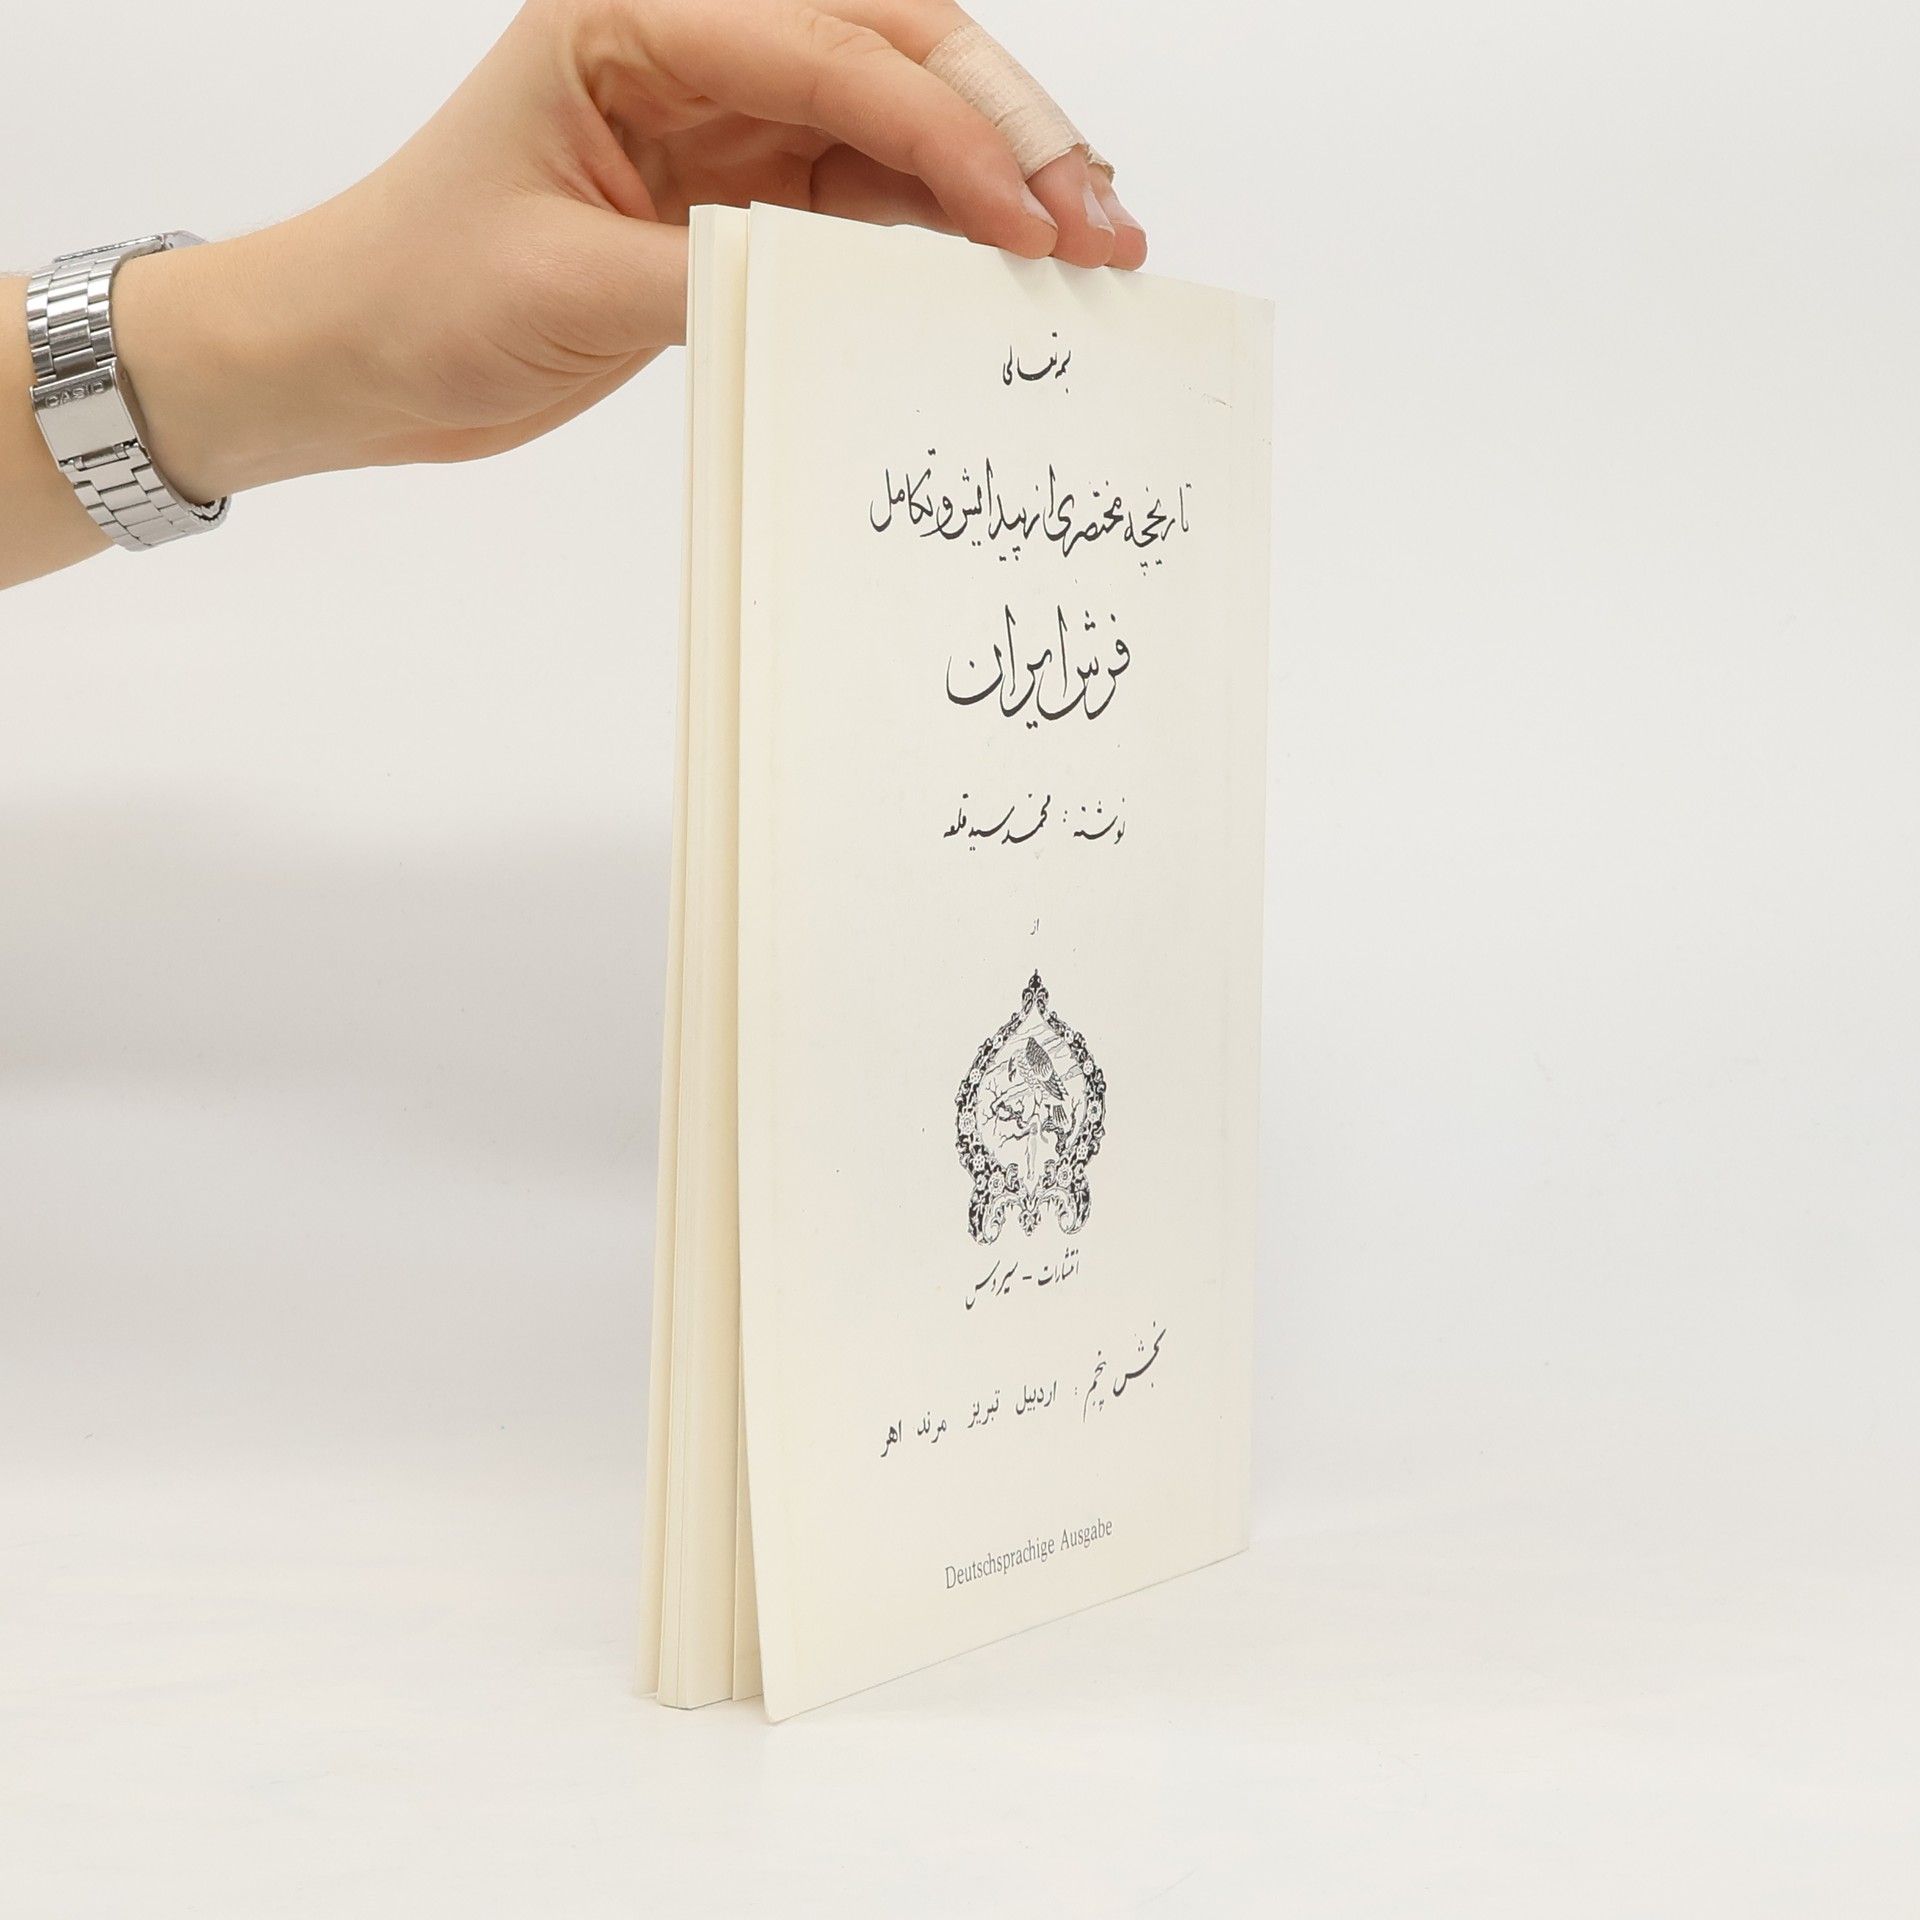 CASIO
بسمه تعالی
تاریخچه مختصری از پیدایش و تکامل
فرش ایران
نوشته : محمد سید قلعه
از
انتشارات - سیروس
بخش پنجم : اردبیل تبریز مرند اهر
Deutschsprachige Ausgabe